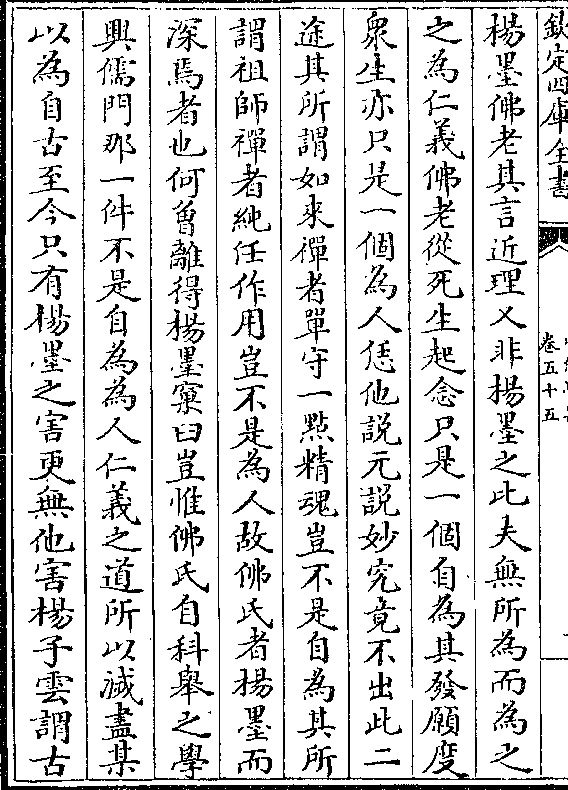 欽定四庫全書
卷五十五
楊墨佛老其言近理又非揚墨之比夫無所為而為之
之為仁義佛老從死生起念只是一個自為其發願度
衆生亦只是一個為人恁他説元説妙究竟不出此二
途其所謂如來禪者單守一點精魂豈不是自為其所
謂祖師禪者純任作用豈不是為人故佛氏者楊墨而
深焉者也何曽離得楊墨窠臼豈惟佛氏自科舉之學
興儒門那一件不是自為為人仁義之道所以滅盡某
以為自古至今只有楊墨之害更無他害楊子雲謂古